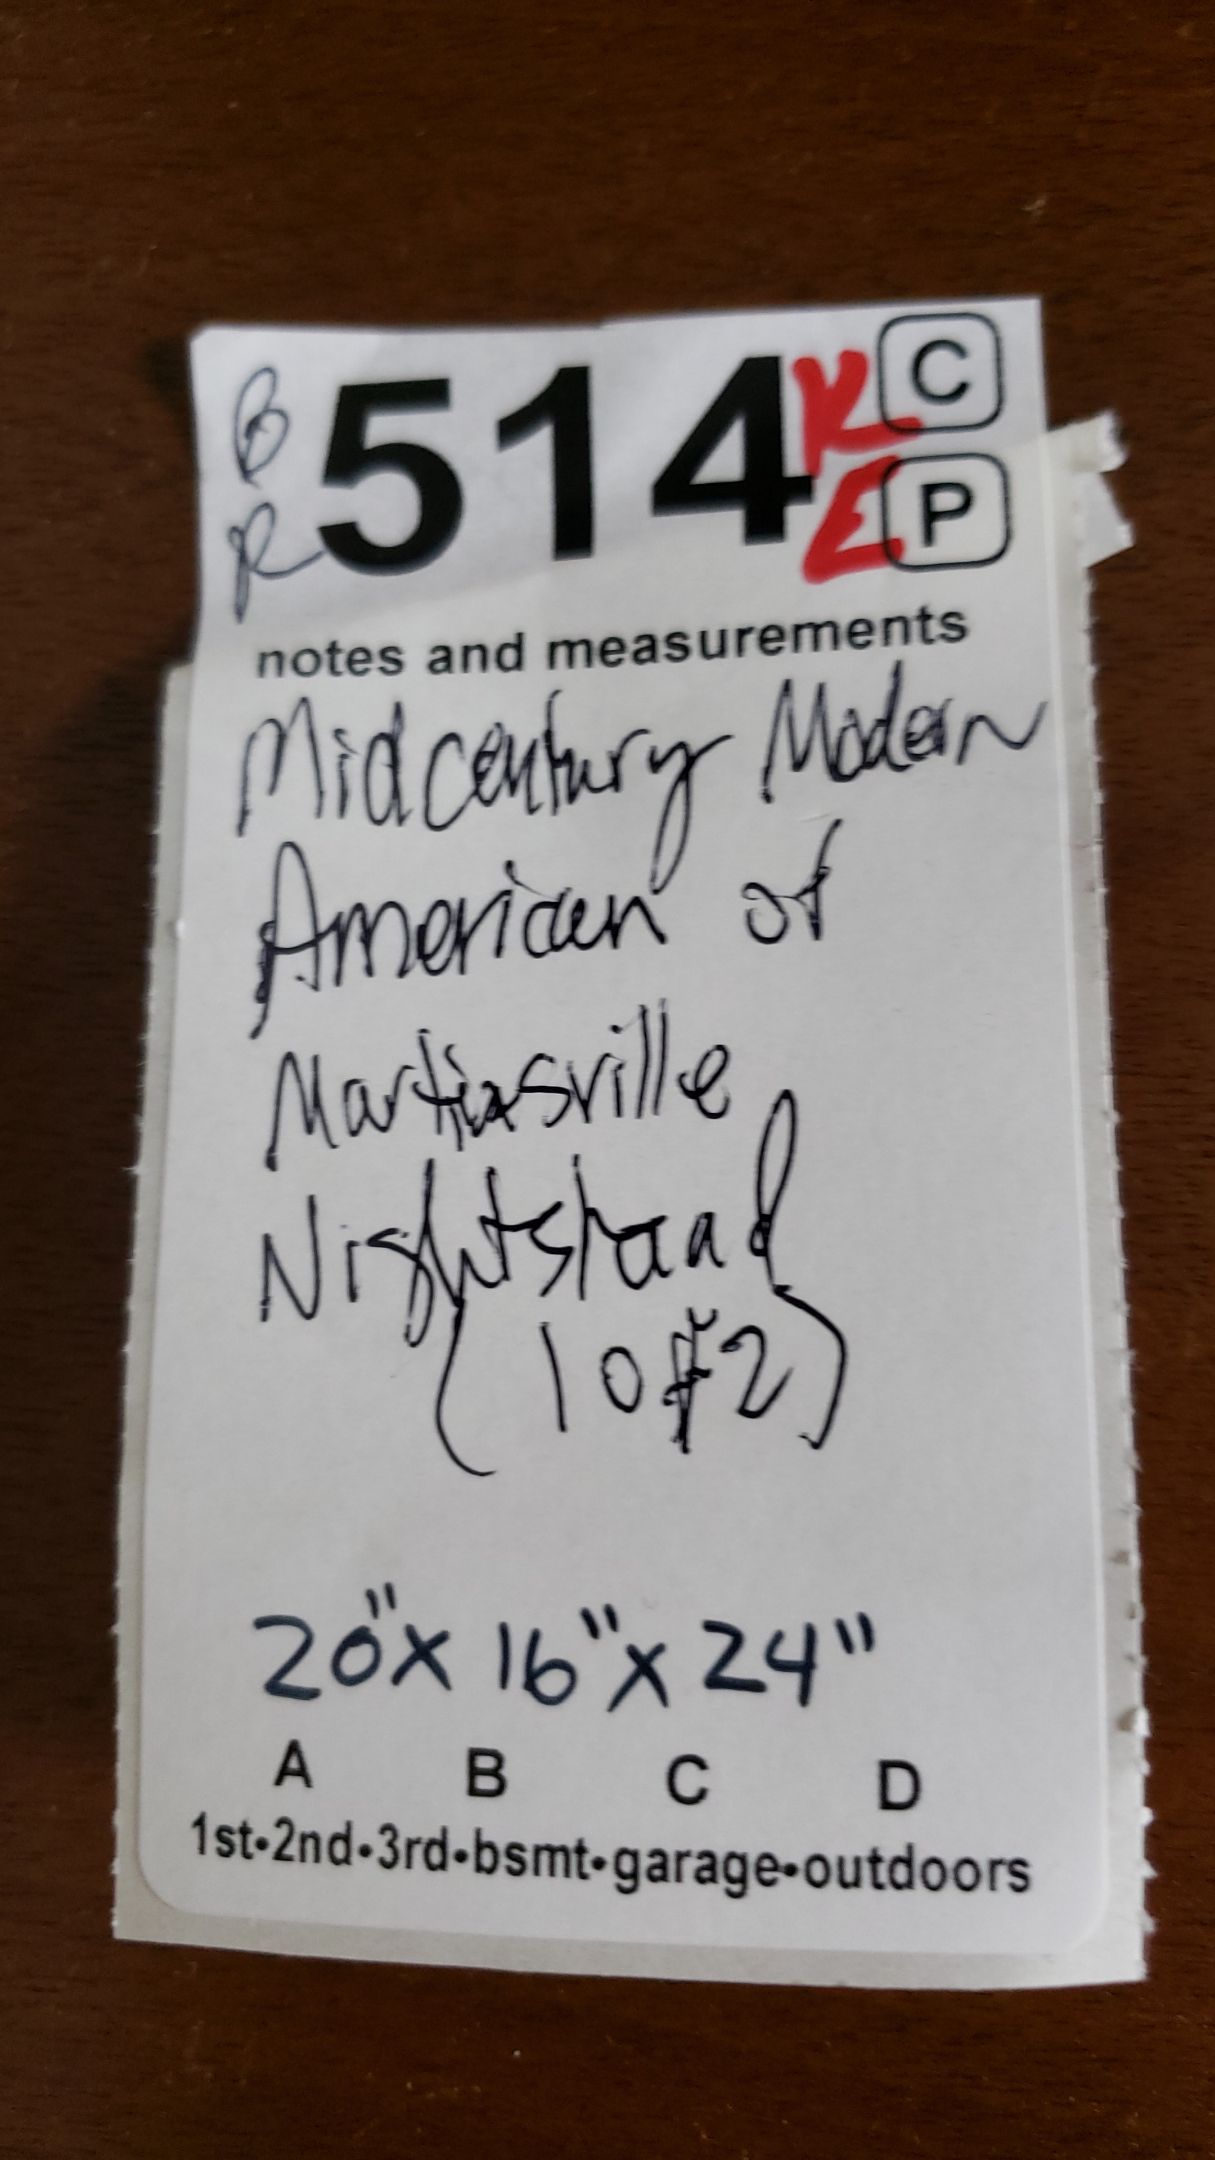 B
R
514
K
E
C
P
notes and measurements
Midcentury Modern
American of
Martinsville
Nightstand
(1 of 2)
20" x 16" x 24"
A B C D
1st•2nd•3rd•bsmt•garage•outdoors